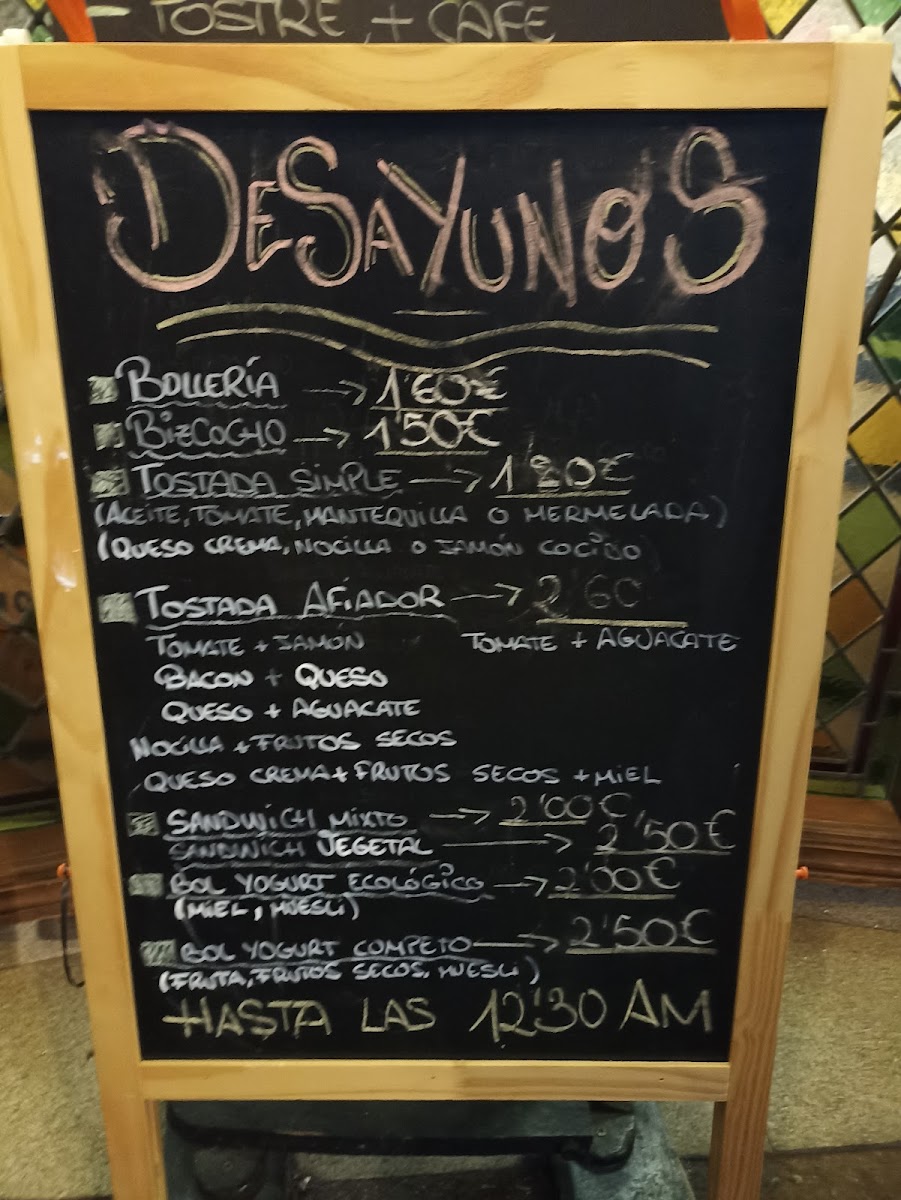 - TOSTRE + CAFE
DESAYUNOS
BOLLERÍA → 1'60€
BIZCOCHO → 1'50€
TOSTADA SIMPLE → 1'80€
(ACEITE, TOMATE, MANTEQUILLA O MERMELADA)
(QUESO CREMA, NOCILLA O JAMÓN COCIDO)
TOSTADA AFIADOR → 2'60
TOMATE + JAMÓN TOMATE + AGUACATE
BACON + QUESO
QUESO + AGUACATE
NOCILLA + FRUTOS SECOS
QUESO CREMA + FRUTOS SECOS + MIEL
SANDWICH MIXTO → 2'00€
SANDWICH VEGETAL → 2'50€
BOL YOGURT ECOLÓGICO → 2'00€
(MIEL, MUESLI)
BOL YOGURT COMPETO → 2'50€
(FRUTA, FRUTOS SECOS, MUESLI)
HASTA LAS 12'30 AM